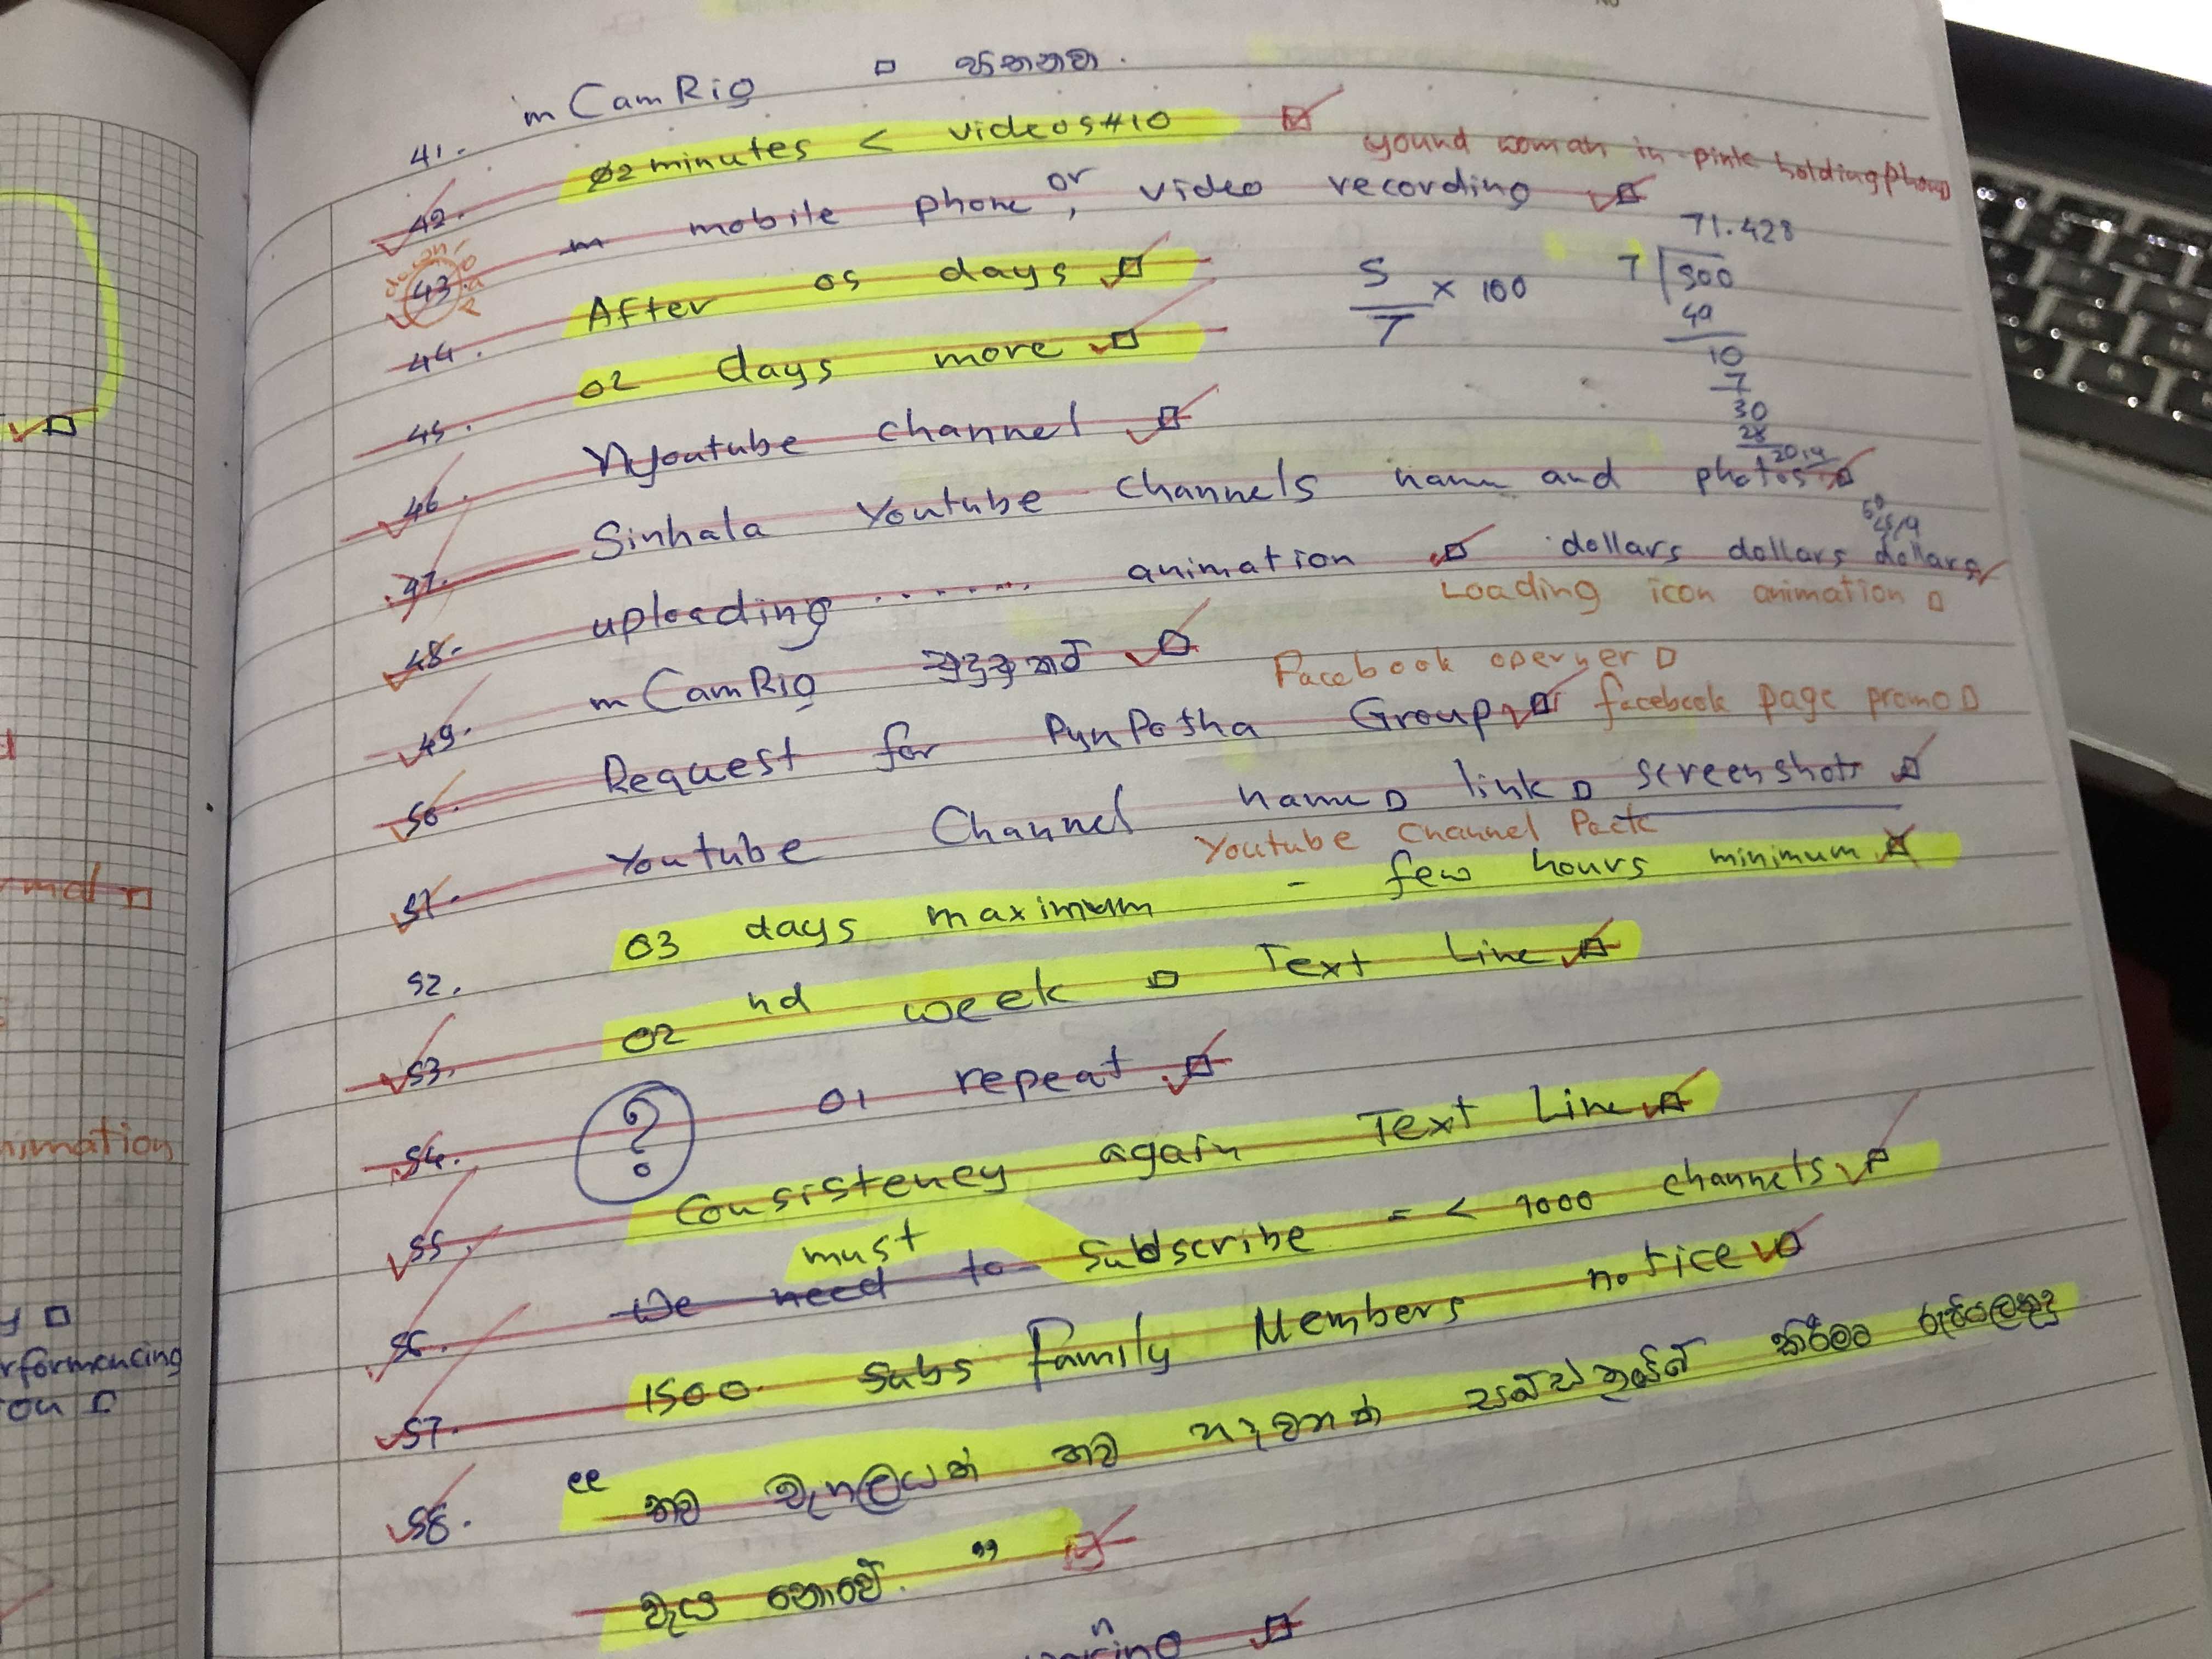 41. m CamRig
42. 02 minutes < videos#10
yound woman in pink holding phone
43. mobile phone or, video recording
44. After 05 days
5/7 x 100
71.428
7 500
49
10
7
30
28
20
45. 02 days more
46. Youtube channel
47. Sinhala Youtube channels name and photos
48. uploading ....... animation dollars dollars dollars
Loading icon animation
49. m CamRig
Facebook operner
50. Request for PynPotha Group facebook page promo
51. Youtube Channel name link screenshots
Youtube Channel Pack
52. 03 days maximum - few hours minimum
53. 02 nd week Text Line
54. ? 01 repeat
55. Consistency again Text Line
must
56. We need to subscribe = < 1000 channels
57. 1500 Subs Family Members notice
58. "තව චැනලයක් තව
නොවේ."
mal
nimation
rformencing
on